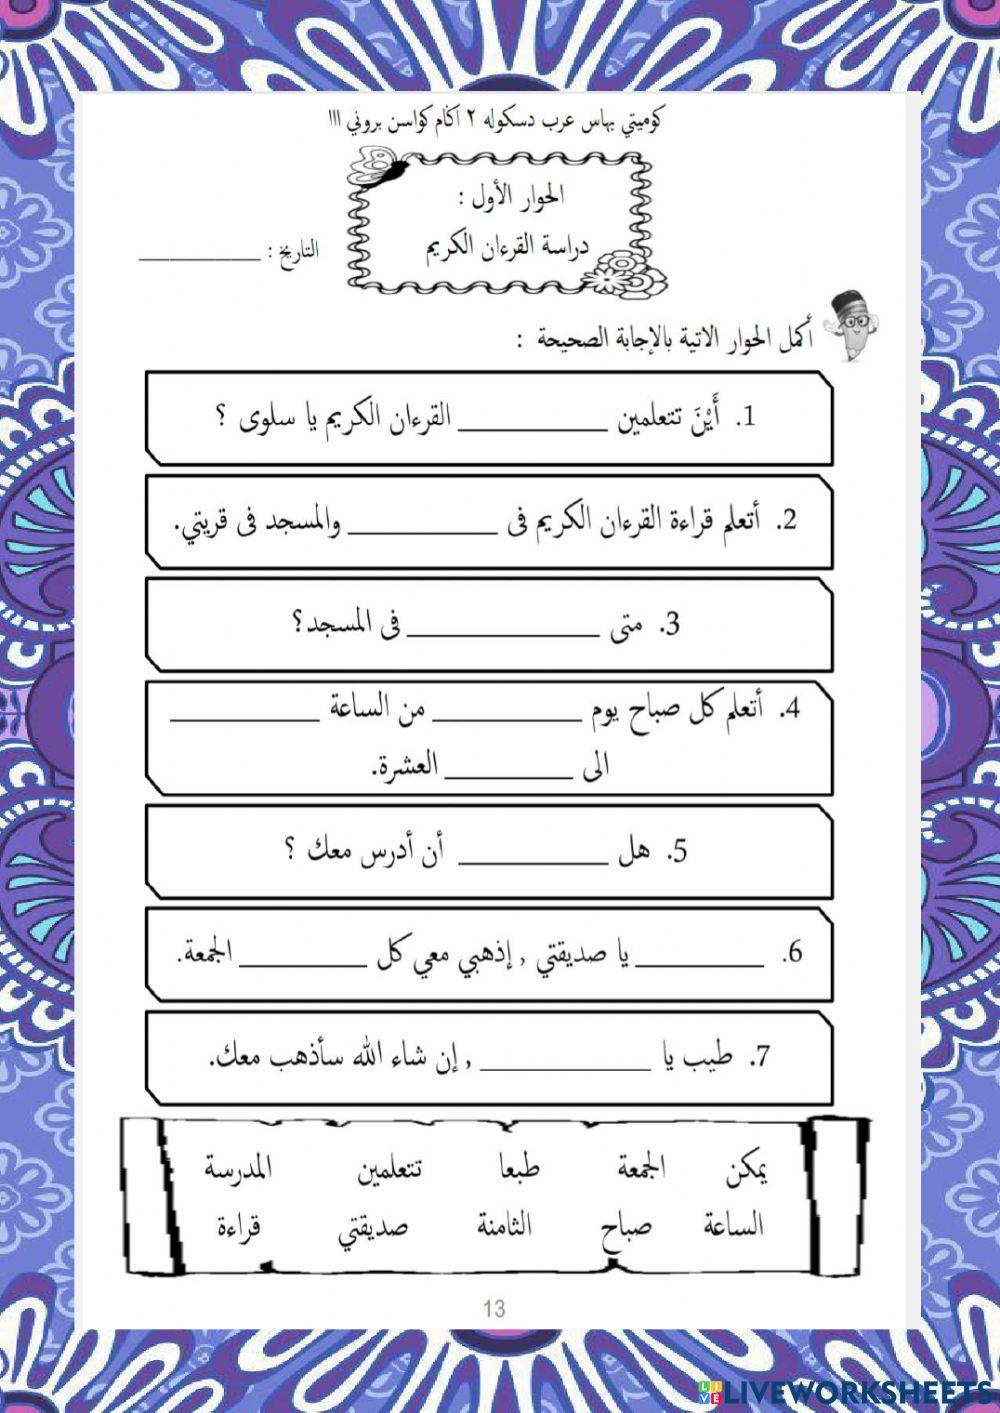 كوميتي بهاس عرب دسكوله ٢ اݢام كواسن بروني III
الحوار الأول :
دراسة القرءان الكريم
التاريخ : ____________
أكمل الحوار الاتية بالإجابة الصحيحة :
1. أَيْنَ تتعلمين ____________ القرءان الكريم يا سلوى ؟
2. أتعلم قراءة القرءان الكريم فى ____________ والمسجد فى قريتي.
3. متى ________________ فى المسجد؟
4. أتعلم كل صباح يوم ____________ من الساعة ____________
الى __________ العشرة.
5. هل ____________ أن أدرس معك ؟
6. __________ يا صديقتي , إذهبي معي كل __________ الجمعة.
7. طيب يا ______________ , إن شاء الله سأذهب معك.
يمكن الجمعة طبعا تتعلمين المدرسة
الساعة صباح الثامنة صديقتي قراءة
13
LIVE LIVEWORKSHEETS